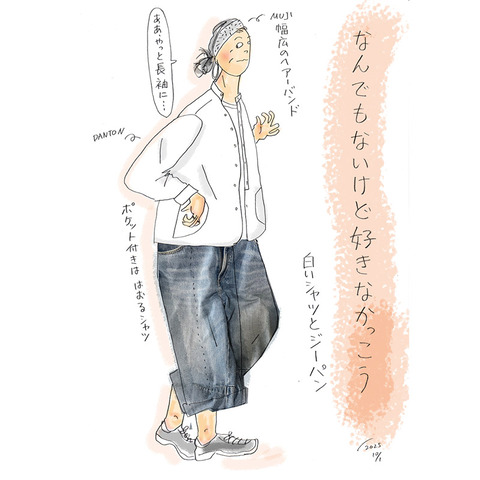 なんでもないけど好きなかっこう
MUJI
幅広のヘアーバンド
ああ、やっと長袖に…
DANTON
ポケット付きは はおるシャツ
白いシャツとジーパン
2025
10/1